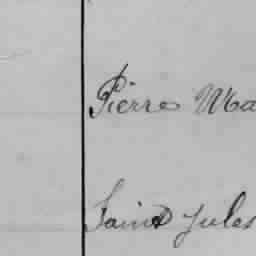 Pierre Ma
Saint Jules